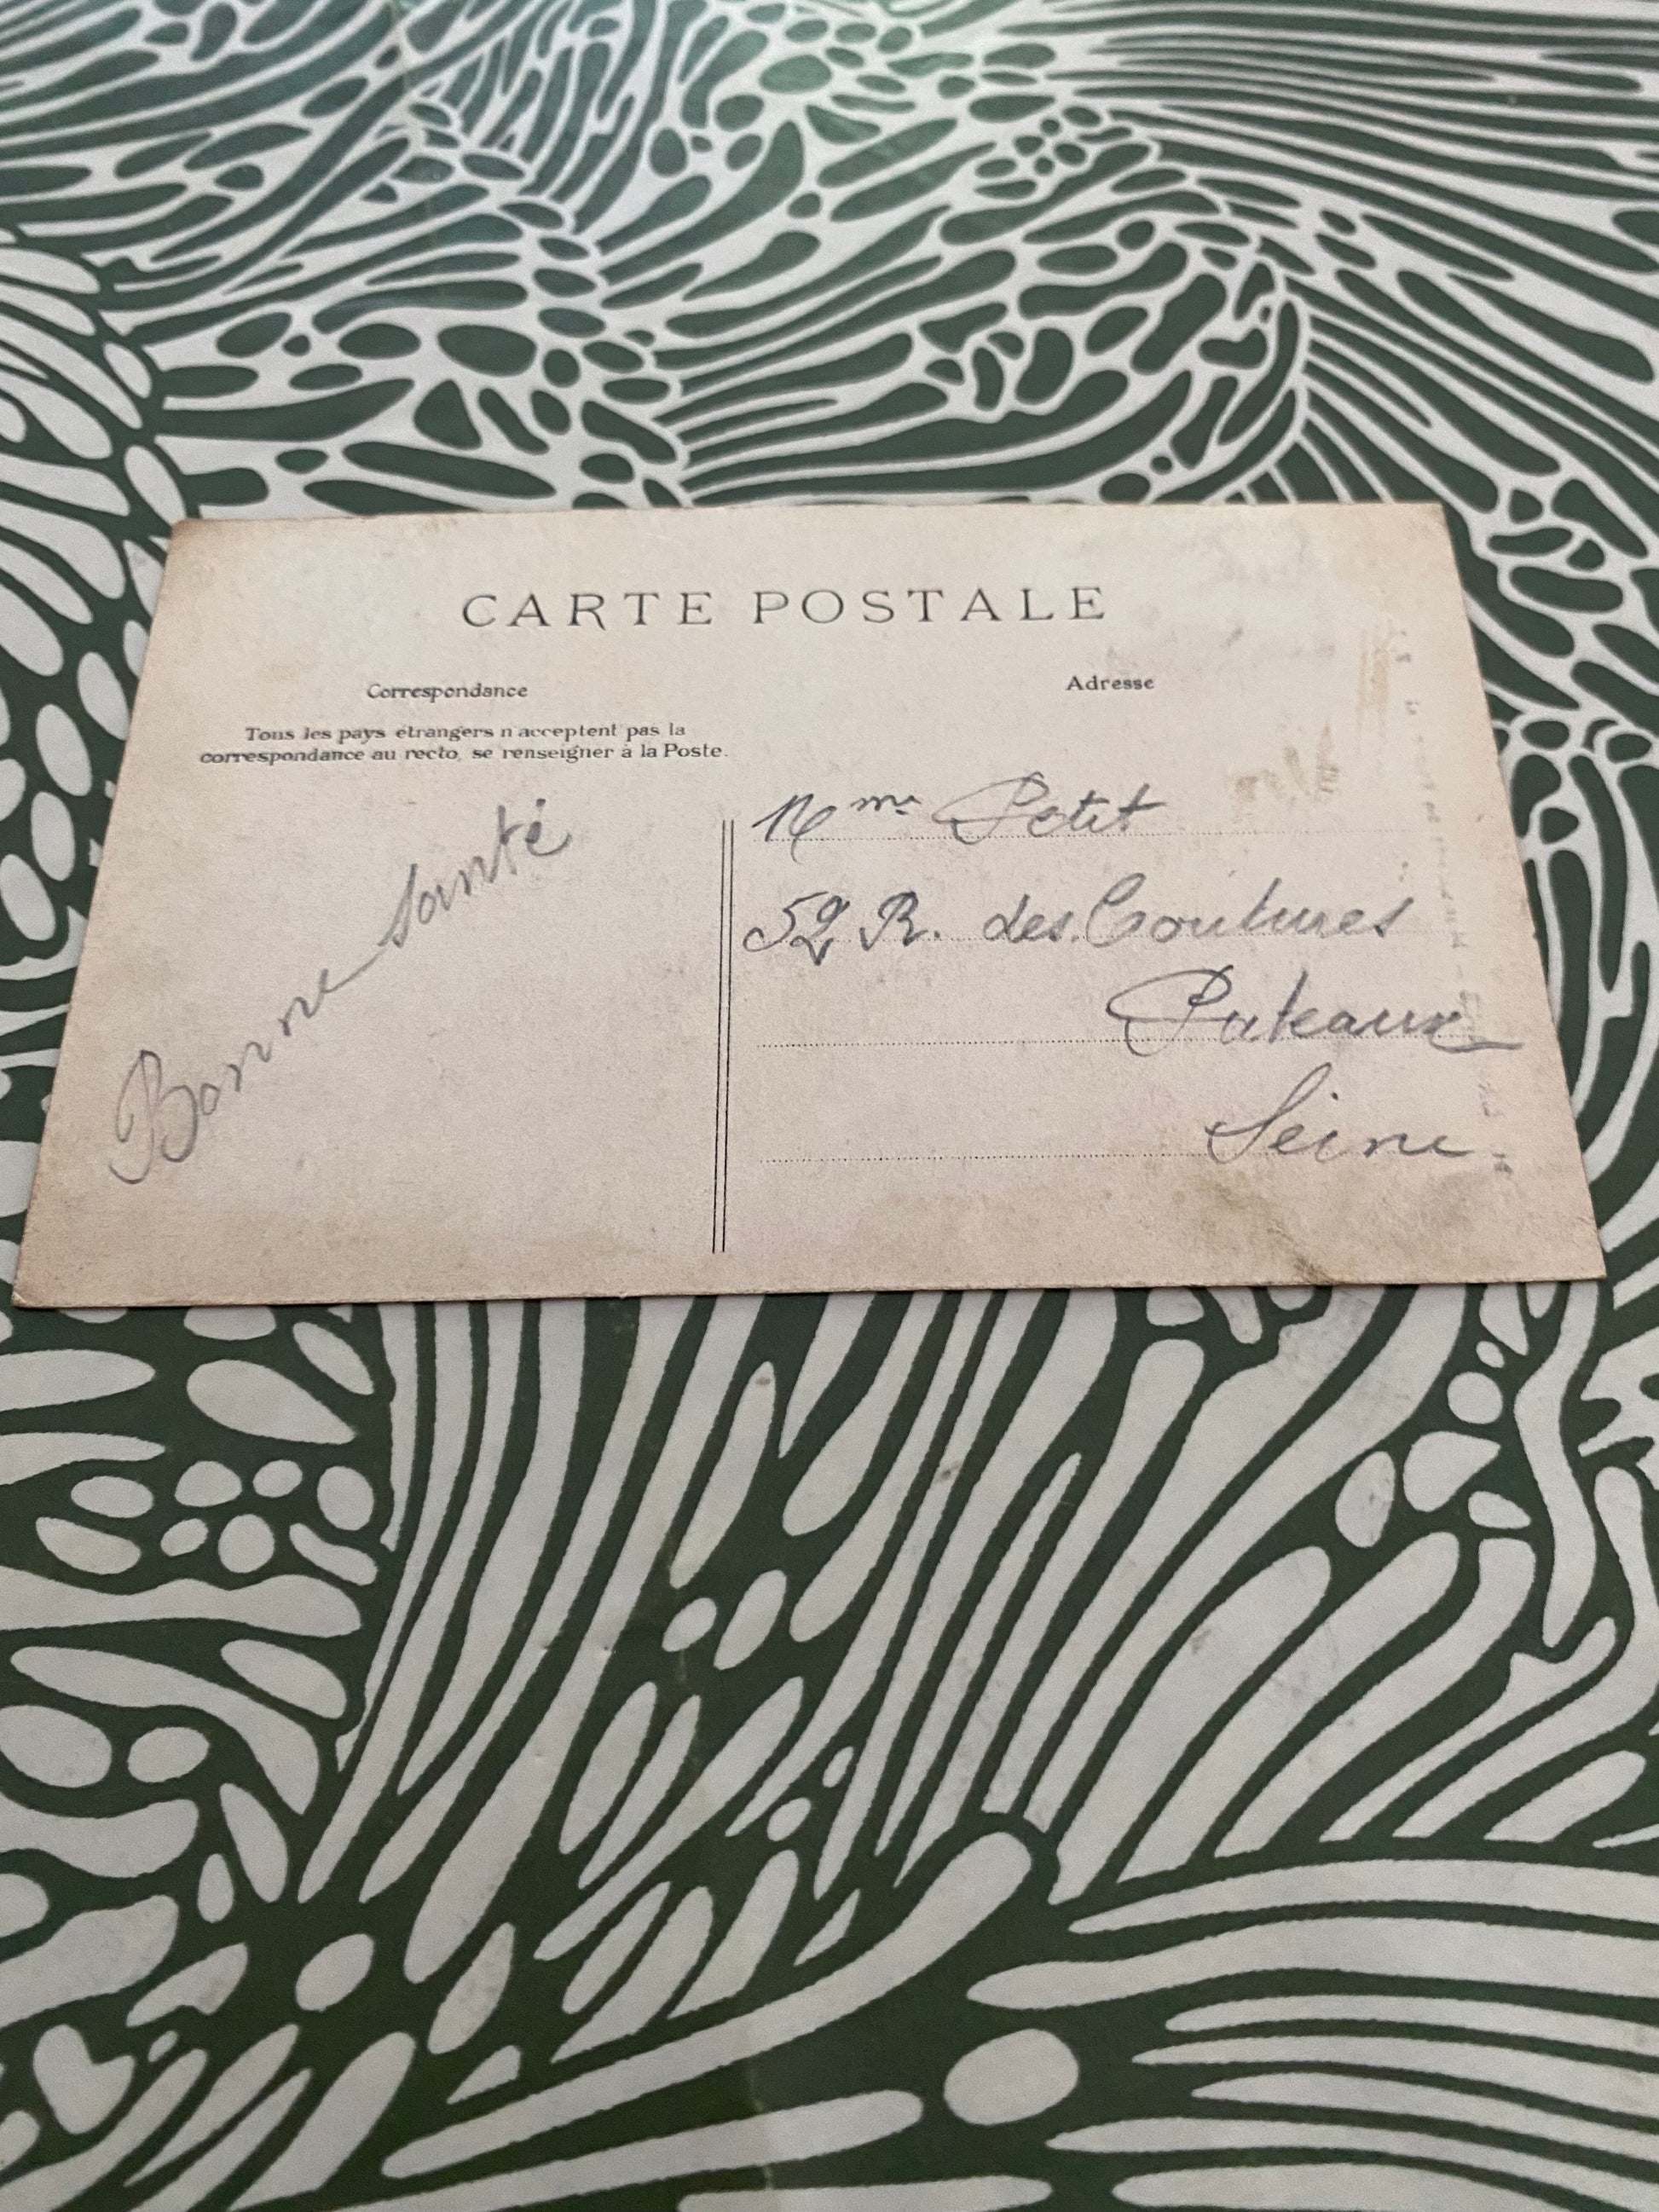 CARTE POSTALE
Correspondance
Tous les pays étrangers n'acceptent pas la
correspondance au recto, se renseigner à la Poste.
Bonne santé
Adresse
Mme Petit
52 R. des Coutures
Puteaux
Seine